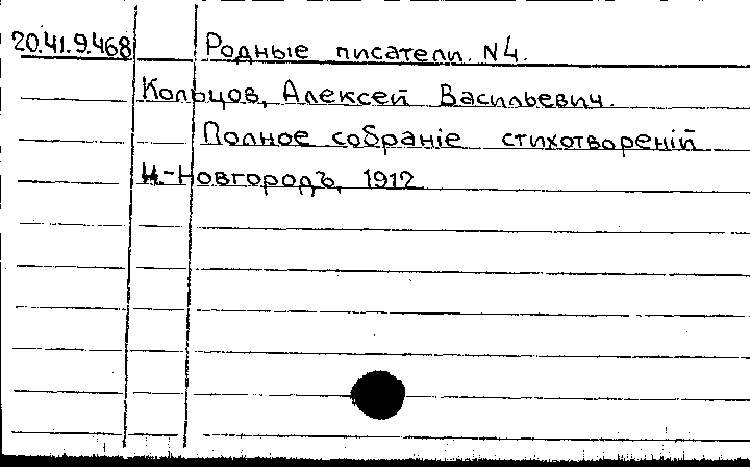 20.41.9.468 Родные писатели. N4.
Кольцов, Алексей Васильевич.
Полное собранiе стихотворенiй
Н.-Новгородъ, 1912